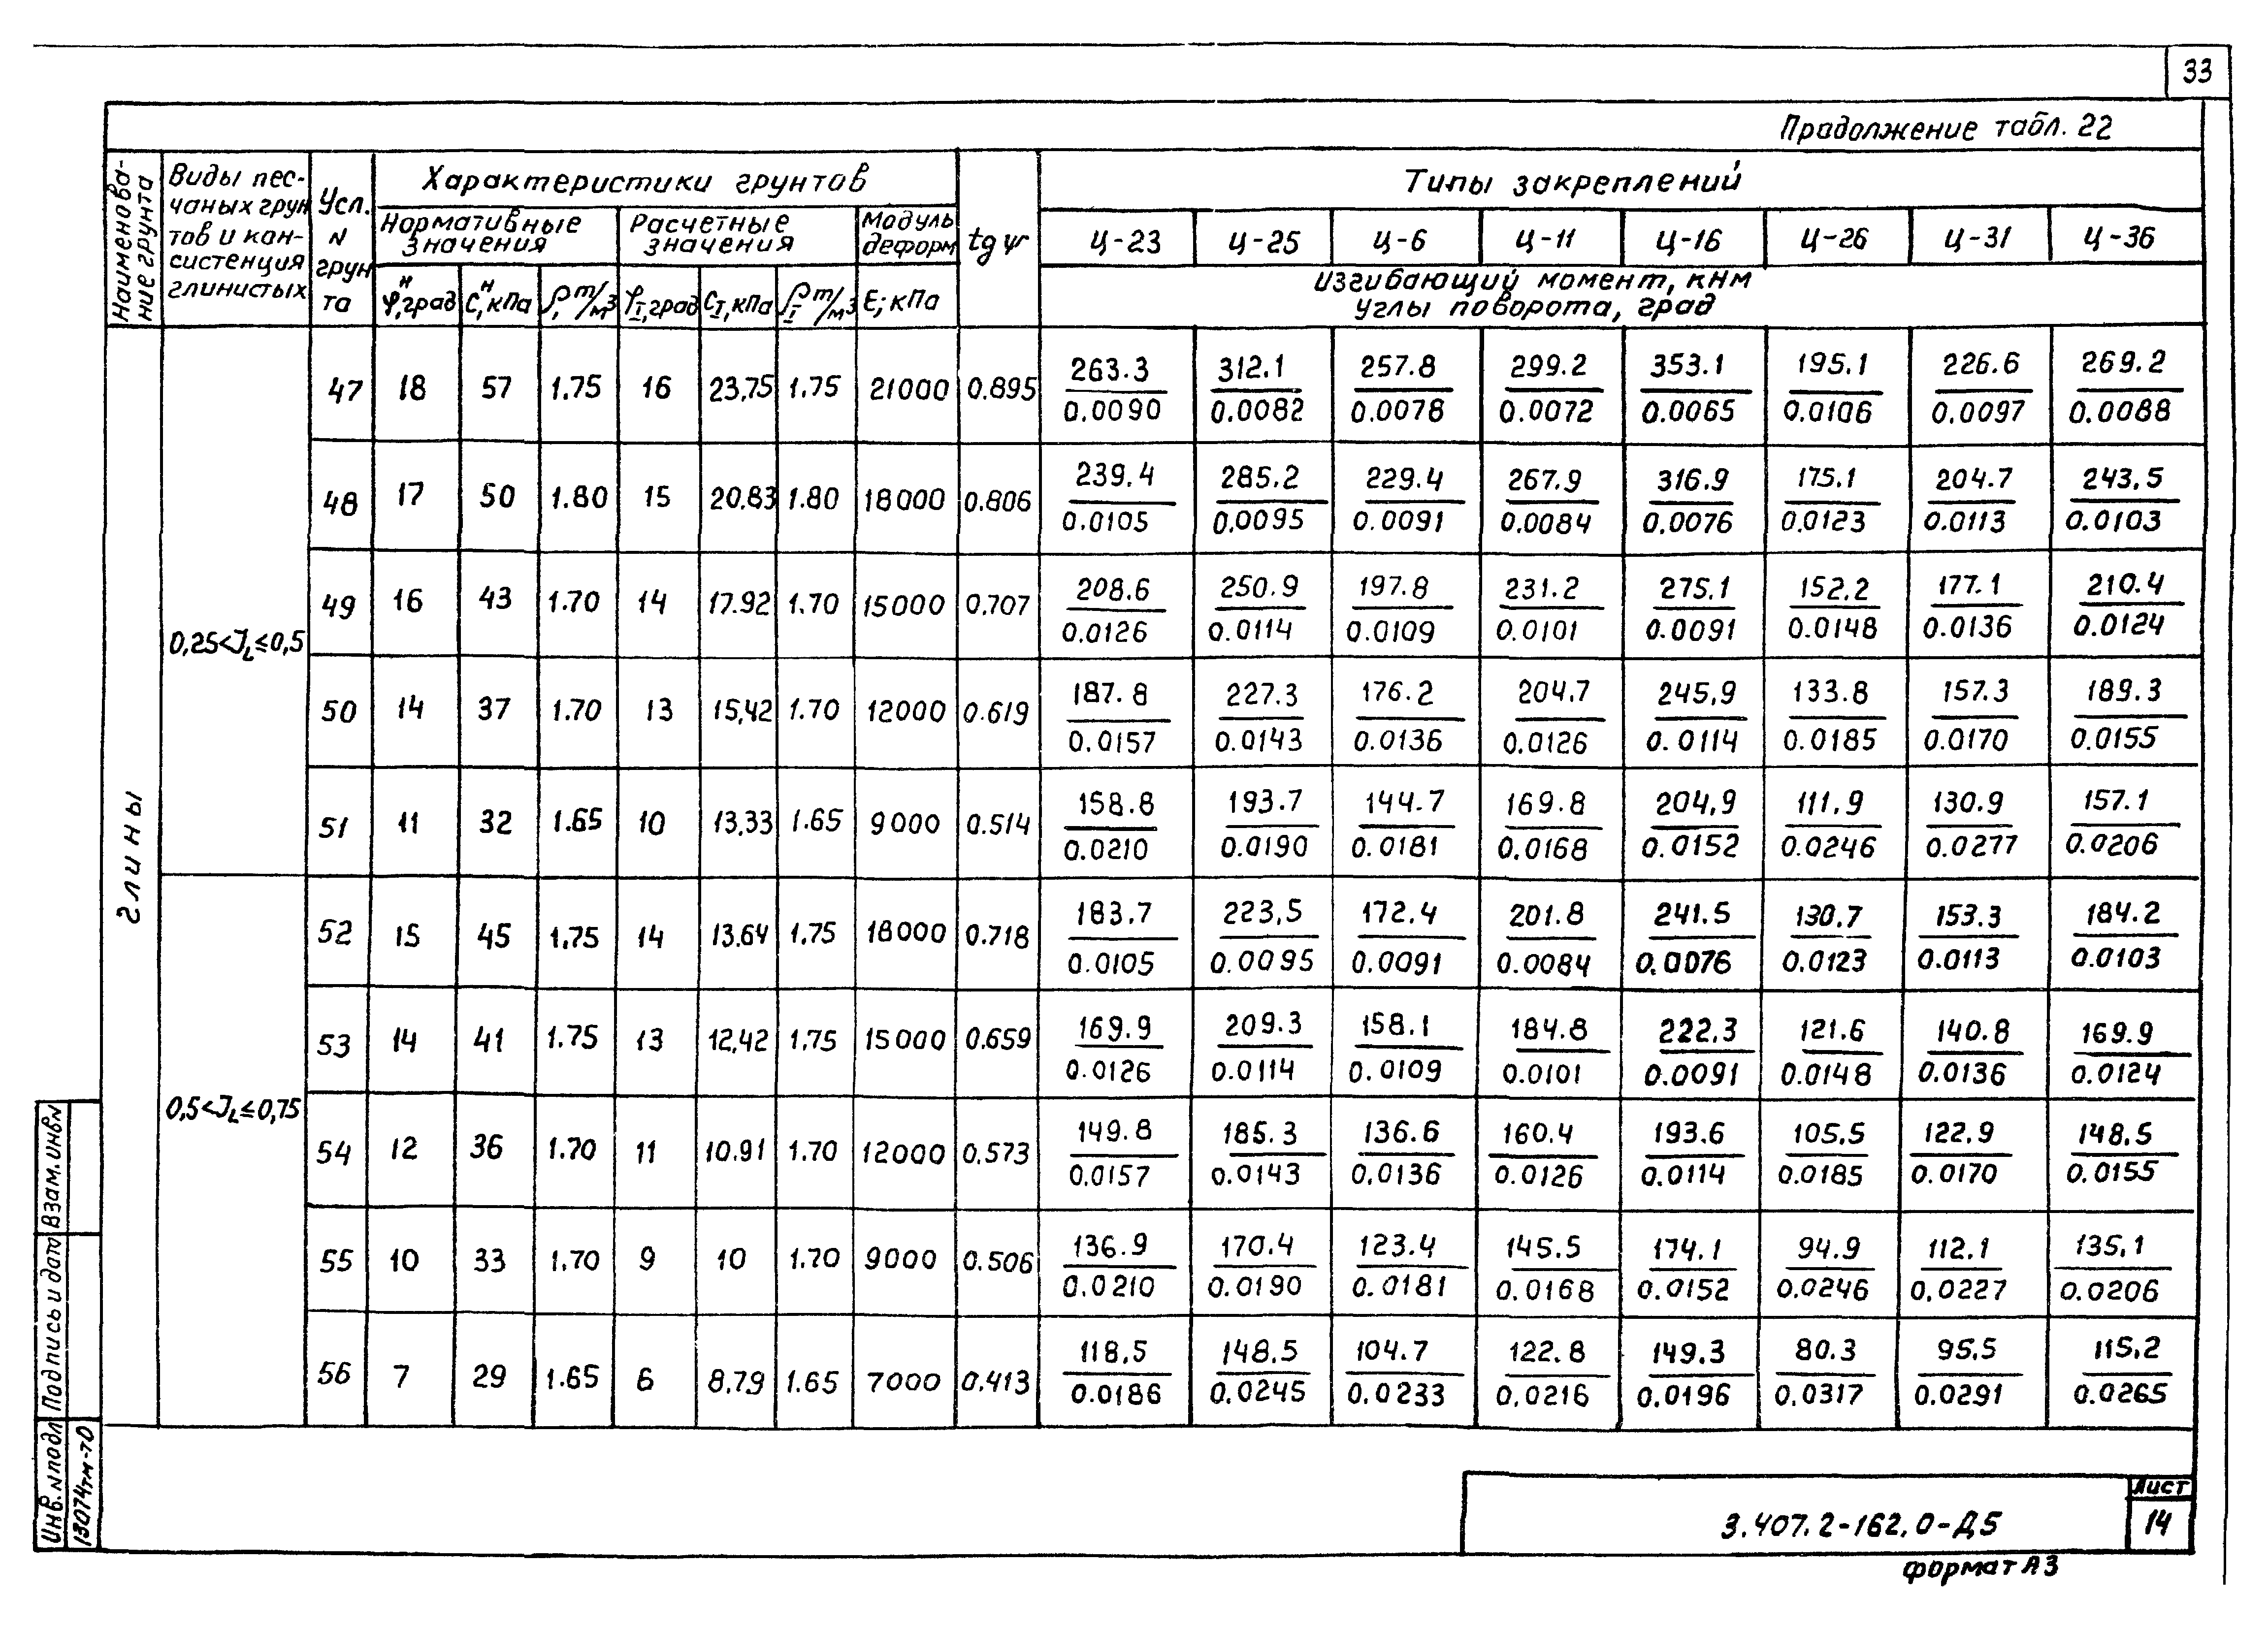 33
Продолжение табл. 22
Наименование грунта
Виды песчаных грунтов и консистенция глинистых
Усл. N грунта
Характеристики грунтов
Нормативные значения
Расчетные значения
Модуль деформ
tgψ
Типы закреплений
Ц-23 Ц-25 Ц-6 Ц-11 Ц-16 Ц-26 Ц-31 Ц-36
φᴴ, град Cᴴ, кПа ρ, т/м3 φI, град CI, кПа ρI т/м3 E; кПа
Изгибающий момент, кНм
Углы поворота, град
глины
0,25<JL≤0,5
47 18 57 1.75 16 23,75 1.75 21000 0.895 263.3 312.1 257.8 299.2 353.1 195.1 226.6 269.2
0.0090 0.0082 0.0078 0.0072 0.0065 0.0106 0.0097 0.0088
48 17 50 1.80 15 20.83 1.80 18000 0.806 239.4 285.2 229.4 267.9 316.9 175.1 204.7 243.5
0.0105 0.0095 0.0091 0.0084 0.0076 0.0123 0.0113 0.0103
49 16 43 1.70 14 17.92 1.70 15000 0.707 208.6 250.9 197.8 231.2 275.1 152.2 177.1 210.4
0.0126 0.0114 0.0109 0.0101 0.0091 0.0148 0.0136 0.0124
50 14 37 1.70 13 15,42 1.70 12000 0.619 187.8 227.3 176.2 204.7 245.9 133.8 157.3 189.3
0.0157 0.0143 0.0136 0.0126 0.0114 0.0185 0.0170 0.0155
51 11 32 1.65 10 13,33 1.65 9000 0.514 158.8 193.7 144.7 169.8 204.9 111.9 130.9 157.1
0.0210 0.0190 0.0181 0.0168 0.0152 0.0246 0.0277 0.0206
0,5<JL≤0,75
52 15 45 1.75 14 13.64 1.75 18000 0.718 183.7 223.5 172.4 201.8 241.5 130.7 153.3 184.2
0.0105 0.0095 0.0091 0.0084 0.0076 0.0123 0.0113 0.0103
53 14 41 1.75 13 12,42 1.75 15000 0.659 169.9 209.3 158.1 184.8 222.3 121.6 140.8 169.9
0.0126 0.0114 0.0109 0.0101 0.0091 0.0148 0.0136 0.0124
54 12 36 1.70 11 10.91 1.70 12000 0.573 149.8 185.3 136.6 160.4 193.6 105.5 122.9 148.5
0.0157 0.0143 0.0136 0.0126 0.0114 0.0185 0.0170 0.0155
55 10 33 1.70 9 10 1.70 9000 0.506 136.9 170.4 123.4 145.5 174.1 94.9 112.1 135.1
0.0210 0.0190 0.0181 0.0168 0.0152 0.0246 0.0227 0.0206
56 7 29 1.65 6 8.79 1.65 7000 0.413 118.5 148.5 104.7 122.8 149.3 80.3 95.5 115.2
0.0186 0.0245 0.0233 0.0216 0.0196 0.0317 0.0291 0.0265
Инв.N подл Подпись и дата Взам.инвN
13074тм-т0
3.407.2-162.0-Д5
Лист
14
формат А3